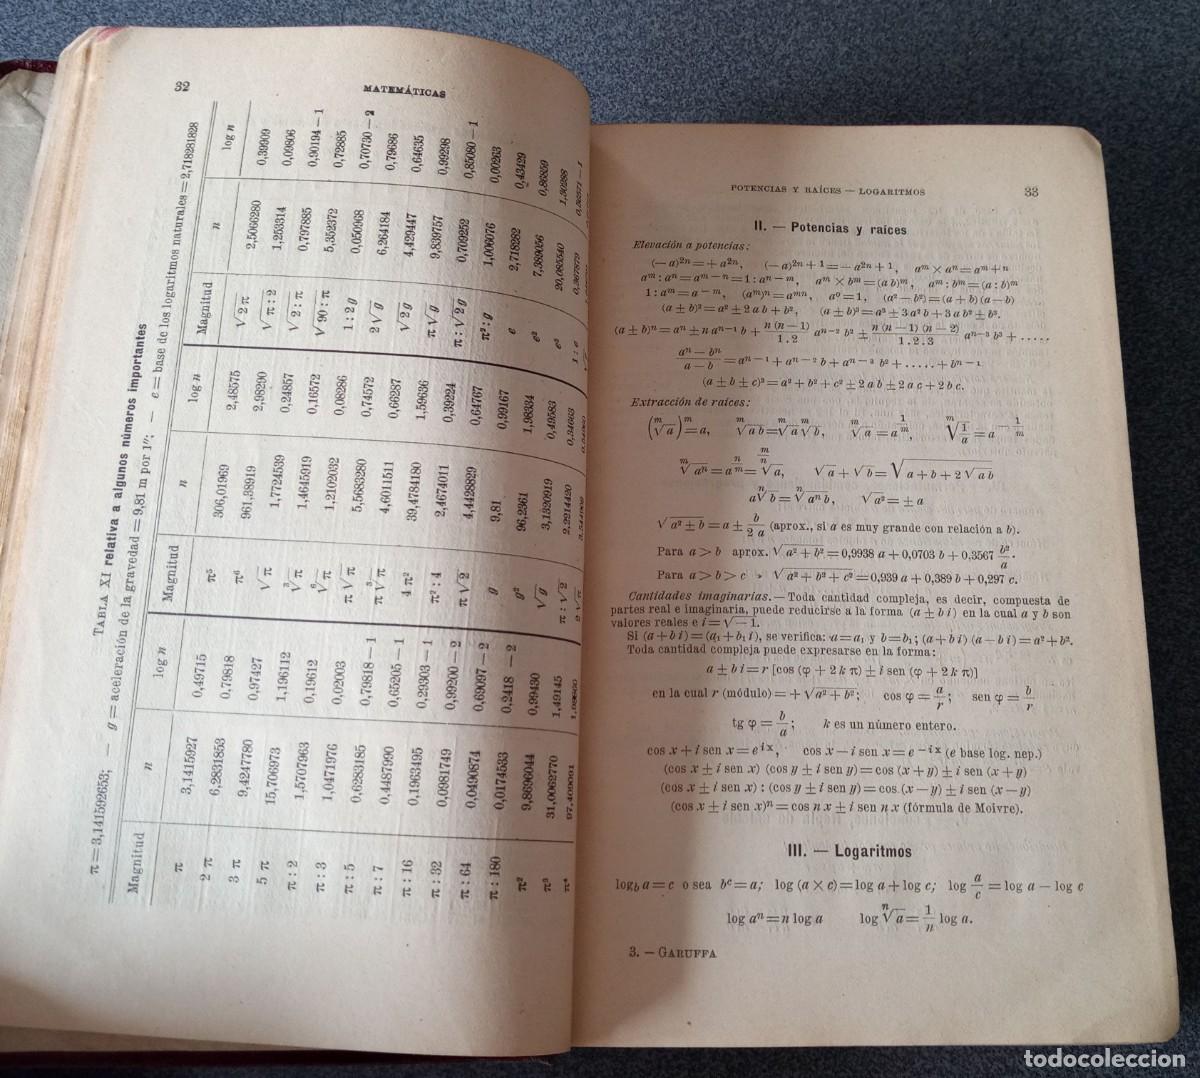 32
MATEMÁTICAS
TABLA XI relativa a algunos números importantes
π = 3,141592653; — g = aceleración de la gravedad = 9,81 m por 1"; — e = base de los logaritmos naturales = 2,718281828
Magnitud n log n Magnitud n log n Magnitud n log n
π 3,1415927 0,49715 π⁵ 306,01969 2,48575 √2π 2,5066280 0,39909
2 π 6,2831853 0,79818 π⁶ 961,38919 2,98290 √π : 2 1,253314 0,09806
3 π 9,4247780 0,97427 √π 1,7724539 0,24857 √2 : π 0,797885 0,90194 — 1
5 π 15,706973 1,196112 ³√π 1,4645919 0,16572 √90 : π 5,352372 0,72885
π : 2 1,5707963 0,19612 ⁶√π 1,2102032 0,08286 1 : 2 g 0,050968 0,70730 — 2
π : 3 1,0471976 0,02003 π √π 5,5683280 0,74572 2 √g 6,264184 0,79686
π : 5 0,6283185 0,79818 — 1 π ³√π 4,6011511 0,66287 √2 g 4,429447 0,64635
π : 7 0,4487990 0,65205 — 1 4 π² 39,4784180 1,59636 π √g 9,839757 0,99298
π : 16 0,1963495 0,29303 — 1 π² : 4 2,4674011 0,39224 π : √2 g 0,709252 0,85080 — 1
π : 32 0,0981749 0,99200 — 2 π √2 4,4428829 0,64767 π² : g 1,006076 0,00263
π : 64 0,0490874 0,69097 — 2 g 9,81 0,99167 e 2,718282 0,43429
π : 180 0,0174533 0,2418 — 2 g² 96,2361 1,98334 e² 7,389056 0,86859
π² 9,8696044 0,99430 √g 3,1320919 0,49583 e³ 20,085540 1,30288
π³ 31,0062770 1,49145 π : √2 2,2214420 0,34663 1 : e 0,367879
π⁴ 97,409091
POTENCIAS Y RAÍCES — LOGARITMOS 33
II. — Potencias y raíces
Elevación a potencias:
(— a)²ⁿ = + a²ⁿ, (— a)²ⁿ + ¹ = — a²ⁿ + ¹, aᵐ × aⁿ = aᵐ + ⁿ
aᵐ : aⁿ = aᵐ — ⁿ = 1 : aⁿ — ᵐ, aᵐ × bᵐ = (a b)ᵐ, aᵐ : bᵐ = (a : b)ᵐ
1 : aᵐ = a — ᵐ, (aᵐ)ⁿ = aᵐⁿ, a⁰ = 1, (a² — b²) = (a + b) (a — b)
(a ± b)² = a² ± 2 a b + b², (a ± b)³ = a³ ± 3 a² b + 3 a b² ± b³.
(a ± b)ⁿ = aⁿ ± n aⁿ⁻¹ b + n (n — 1) / 1 . 2 aⁿ⁻² b² ± n (n — 1) (n — 2) / 1 . 2 . 3 aⁿ⁻³ b³ + .....
aⁿ — bⁿ / a — b = aⁿ — ¹ + aⁿ — ² b + aⁿ — ³ b² + ..... + bⁿ — ¹
(a ± b ± c)² = a² + b² + c² ± 2 a b ± 2 a c + 2 b c.
Extracción de raíces:
(ᵐ√a)ᵐ = a, ᵐ√a b = ᵐ√a ᵐ√b, ᵐ√a = a^(1/m), ᵐ√(1/a) = a^(— 1/m)
ᵐ√aⁿ = a^(n/m) = ^(m/n)√a, √a + √b = √(a + b + 2 √a b)
a ⁿ√b = ⁿ√aⁿ b, √a² = ± a
√a² ± b = a ± b / 2 a (aprox., si a es muy grande con relación a b).
Para a > b aprox. √a² + b² = 0,9938 a + 0,0703 b + 0,3567 b² / a.
Para a > b > c » √a² + b² + c² = 0,939 a + 0,389 b + 0,297 c.
Cantidades imaginarias. — Toda cantidad compleja, es decir, compuesta de
partes real e imaginaria, puede reducirse a la forma (a ± b i) en la cual a y b son
valores reales e i = √— 1.
Si (a + b i) = (a₁ + b₁ i), se verifica: a = a₁ y b = b₁; (a + b i) (a — b i) = a² + b².
Toda cantidad compleja puede expresarse en la forma:
a ± b i = r [cos (φ + 2 k π) ± i sen (φ + 2 k π)]
en la cual r (módulo) = + √a² + b²; cos φ = a / r; sen φ = b / r
tg φ = b / a; k es un número entero.
cos x + i sen x = e^ix, cos x — i sen x = e^—ix (e base log. nep.)
(cos x ± i sen x) (cos y ± i sen y) = cos (x + y) ± i sen (x + y)
(cos x ± i sen x) : (cos y ± i sen y) = cos (x — y) ± i sen (x — y)
(cos x ± i sen x)ⁿ = cos n x ± i sen n x (fórmula de Moivre).
III. — Logaritmos
log_b a = c o sea bᶜ = a; log (a × c) = log a + log c; log a / c = log a — log c
log aⁿ = n log a log ⁿ√a = 1 / n log a.
3. — GARUFFA
todocoleccion